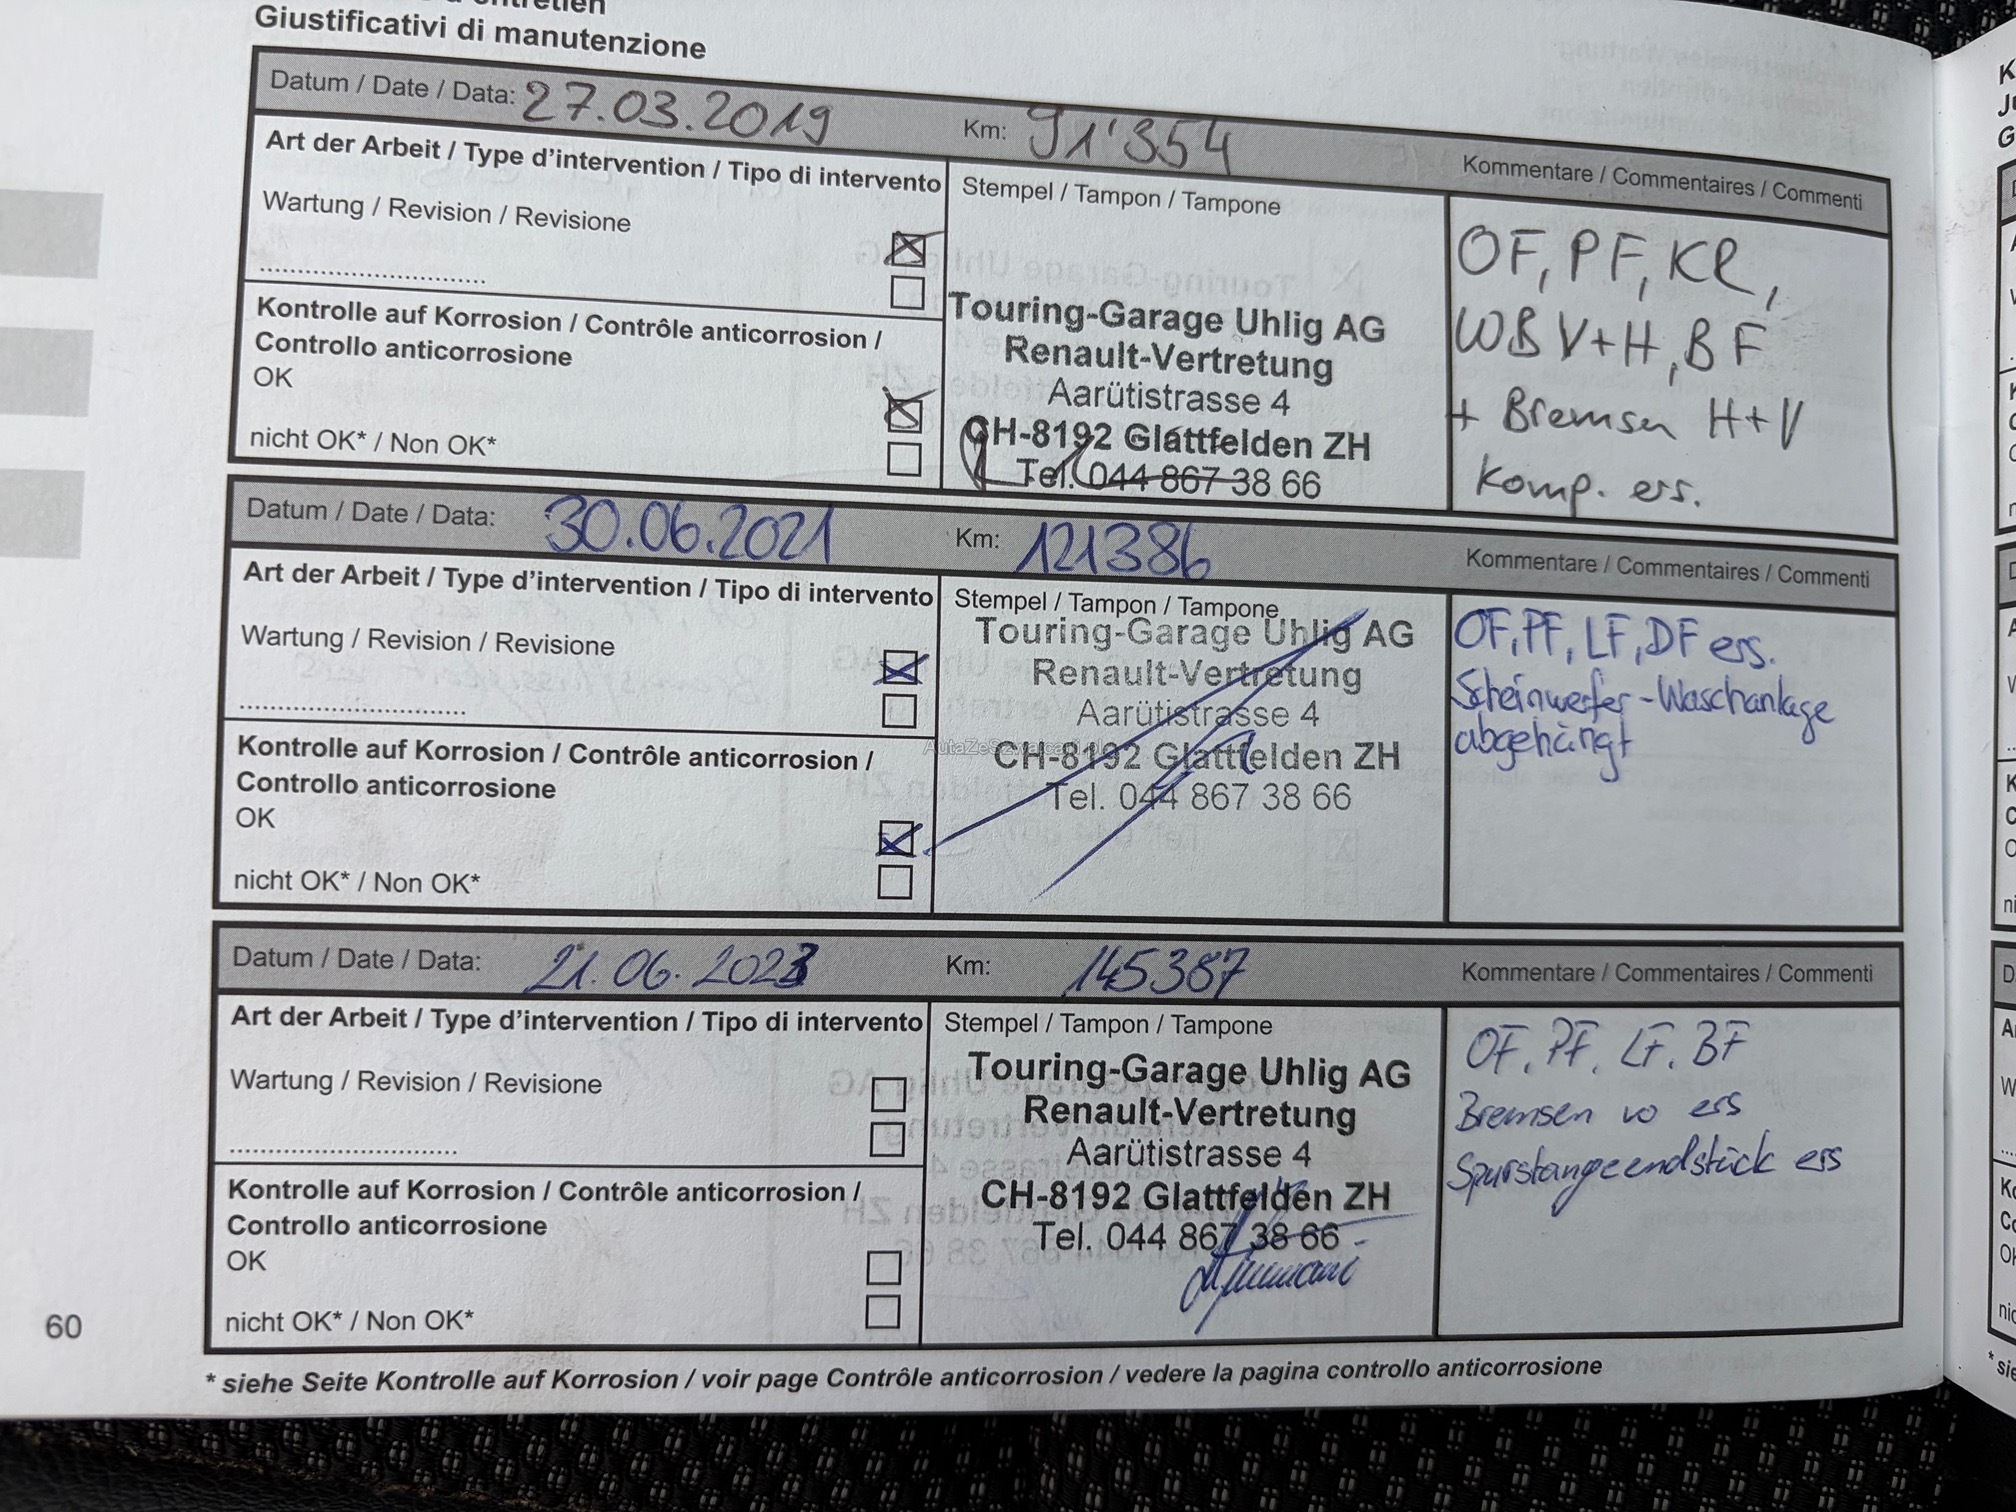 Giustificativi di manutenzione
Datum / Date / Data: 27.03.2019 Km: 91'354 Kommentare / Commentaires / Commenti
Art der Arbeit / Type d'intervention / Tipo di intervento
Stempel / Tampon / Tampone
Wartung / Revision / Revisione
Kontrolle auf Korrosion / Contrôle anticorrosion /
Controllo anticorrosione
OK
nicht OK* / Non OK*
Touring-Garage Uhlig AG
Renault-Vertretung
Aarütistrasse 4
CH-8192 Glattfelden ZH
Tel. 044 867 38 66
OF, PF, KR,
WB V+H, BF
+ Bremsen H+V
Komp. ers.
Datum / Date / Data: 30.06.2021 Km: 121386 Kommentare / Commentaires / Commenti
Art der Arbeit / Type d'intervention / Tipo di intervento
Stempel / Tampon / Tampone
Wartung / Revision / Revisione
Kontrolle auf Korrosion / Contrôle anticorrosion /
Controllo anticorrosione
OK
nicht OK* / Non OK*
Touring-Garage Uhlig AG
Renault-Vertretung
Aarütistrasse 4
CH-8192 Glattfelden ZH
Tel. 044 867 38 66
OF, PF, LF, DF ers.
Scheinwerfer-Waschanlage
abgehängt
Datum / Date / Data: 21.06.2023 Km: 145387 Kommentare / Commentaires / Commenti
Art der Arbeit / Type d'intervention / Tipo di intervento
Stempel / Tampon / Tampone
Wartung / Revision / Revisione
Kontrolle auf Korrosion / Contrôle anticorrosion /
Controllo anticorrosione
OK
nicht OK* / Non OK*
Touring-Garage Uhlig AG
Renault-Vertretung
Aarütistrasse 4
CH-8192 Glattfelden ZH
Tel. 044 867 38 66
OF, PF, LF, BF
Bremsen vo ers
Spurstangeendstück ers
60
* siehe Seite Kontrolle auf Korrosion / voir page Contrôle anticorrosion / vedere la pagina controllo anticorrosione